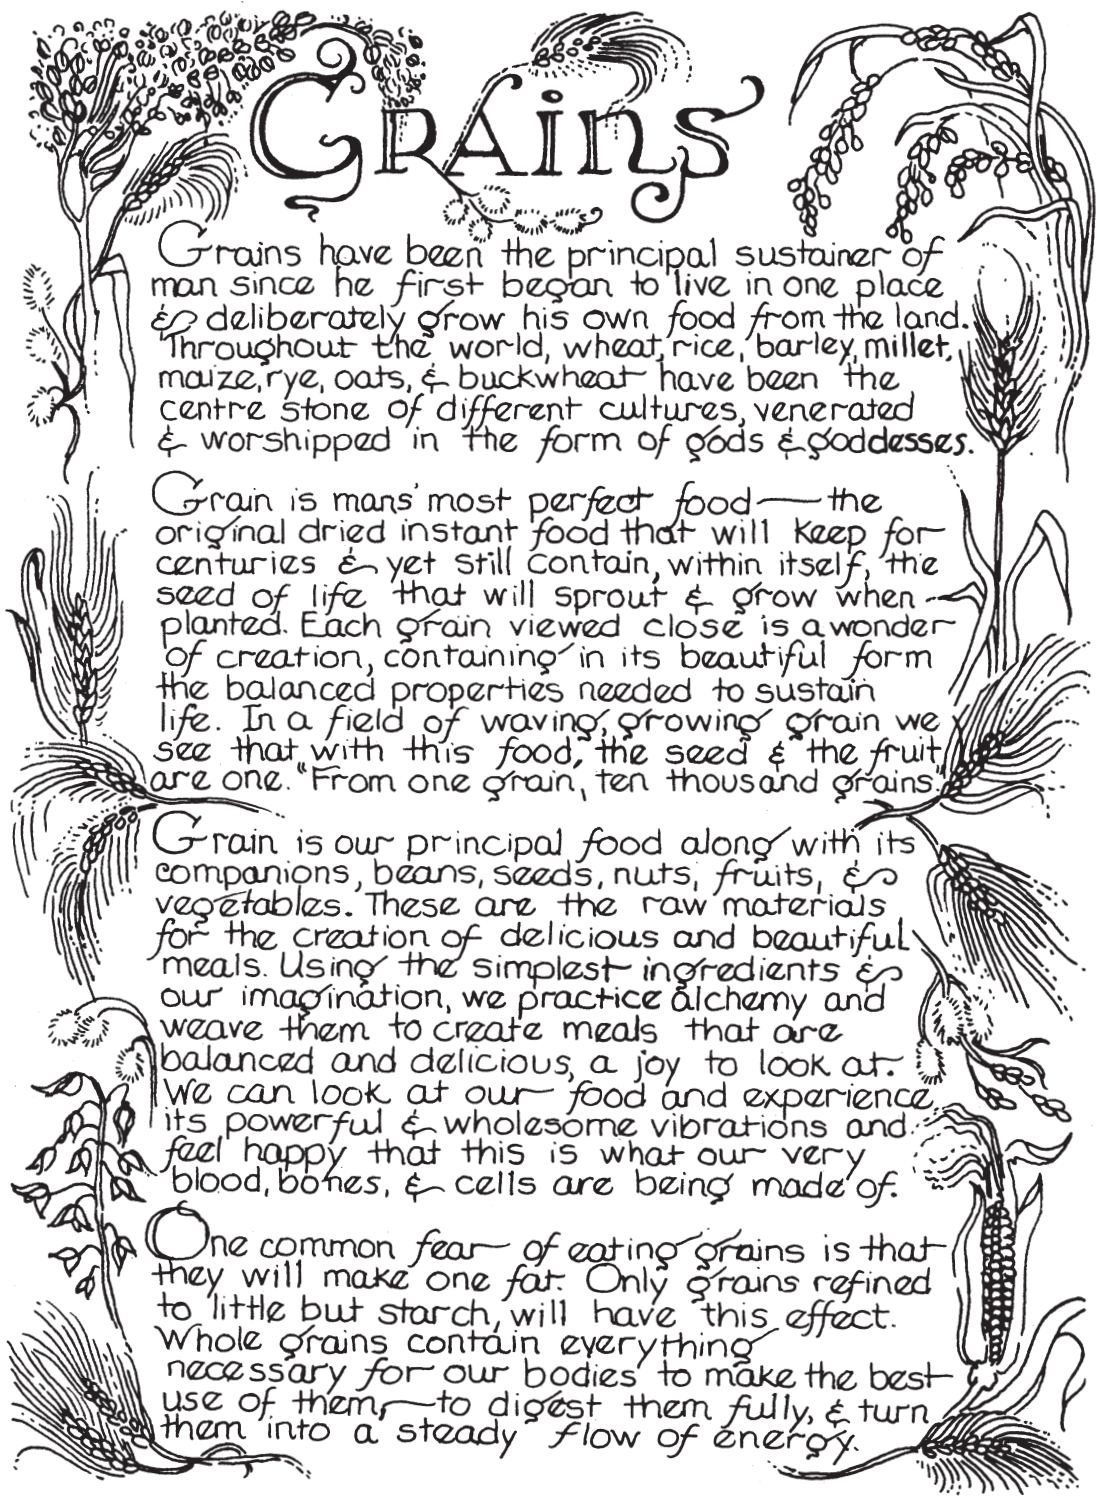 Grains
Grains have been the principal sustainer of
man since he first began to live in one place
& deliberately grow his own food from the land.
Throughout the world, wheat, rice, barley, millet,
maize, rye, oats, & buckwheat have been the
centre stone of different cultures, venerated
& worshipped in the form of gods & goddesses.
Grain is mans' most perfect food — the
original dried instant food that will keep for
centuries & yet still contain, within itself, the
seed of life that will sprout & grow when
planted. Each grain viewed close is a wonder
of creation, containing in its beautiful form
the balanced properties needed to sustain
life. In a field of waving, growing grain we
see that with this food, the seed & the fruit
are one. "From one grain, ten thousand grains."
Grain is our principal food along with its
companions, beans, seeds, nuts, fruits, &
vegetables. These are the raw materials
for the creation of delicious and beautiful
meals. Using the simplest ingredients &
our imagination, we practice alchemy and
weave them to create meals that are
balanced and delicious, a joy to look at.
We can look at our food and experience
its powerful & wholesome vibrations and
feel happy that this is what our very
blood, bones, & cells are being made of.
One common fear of eating grains is that
they will make one fat. Only grains refined
to little but starch, will have this effect.
Whole grains contain everything
necessary for our bodies to make the best
use of them, — to digest them fully, & turn
them into a steady flow of energy.